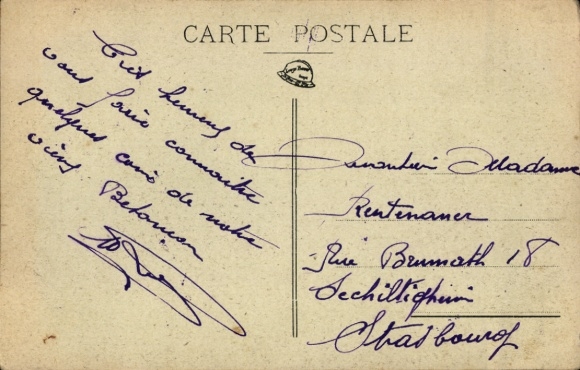 CARTE POSTALE
Très heureux de
vous faire connaitre
quelques coins de notre
vieux Besançon
Madame
Rentenauer
Rue Brumath 18
Schiltigheim
Strasbourg